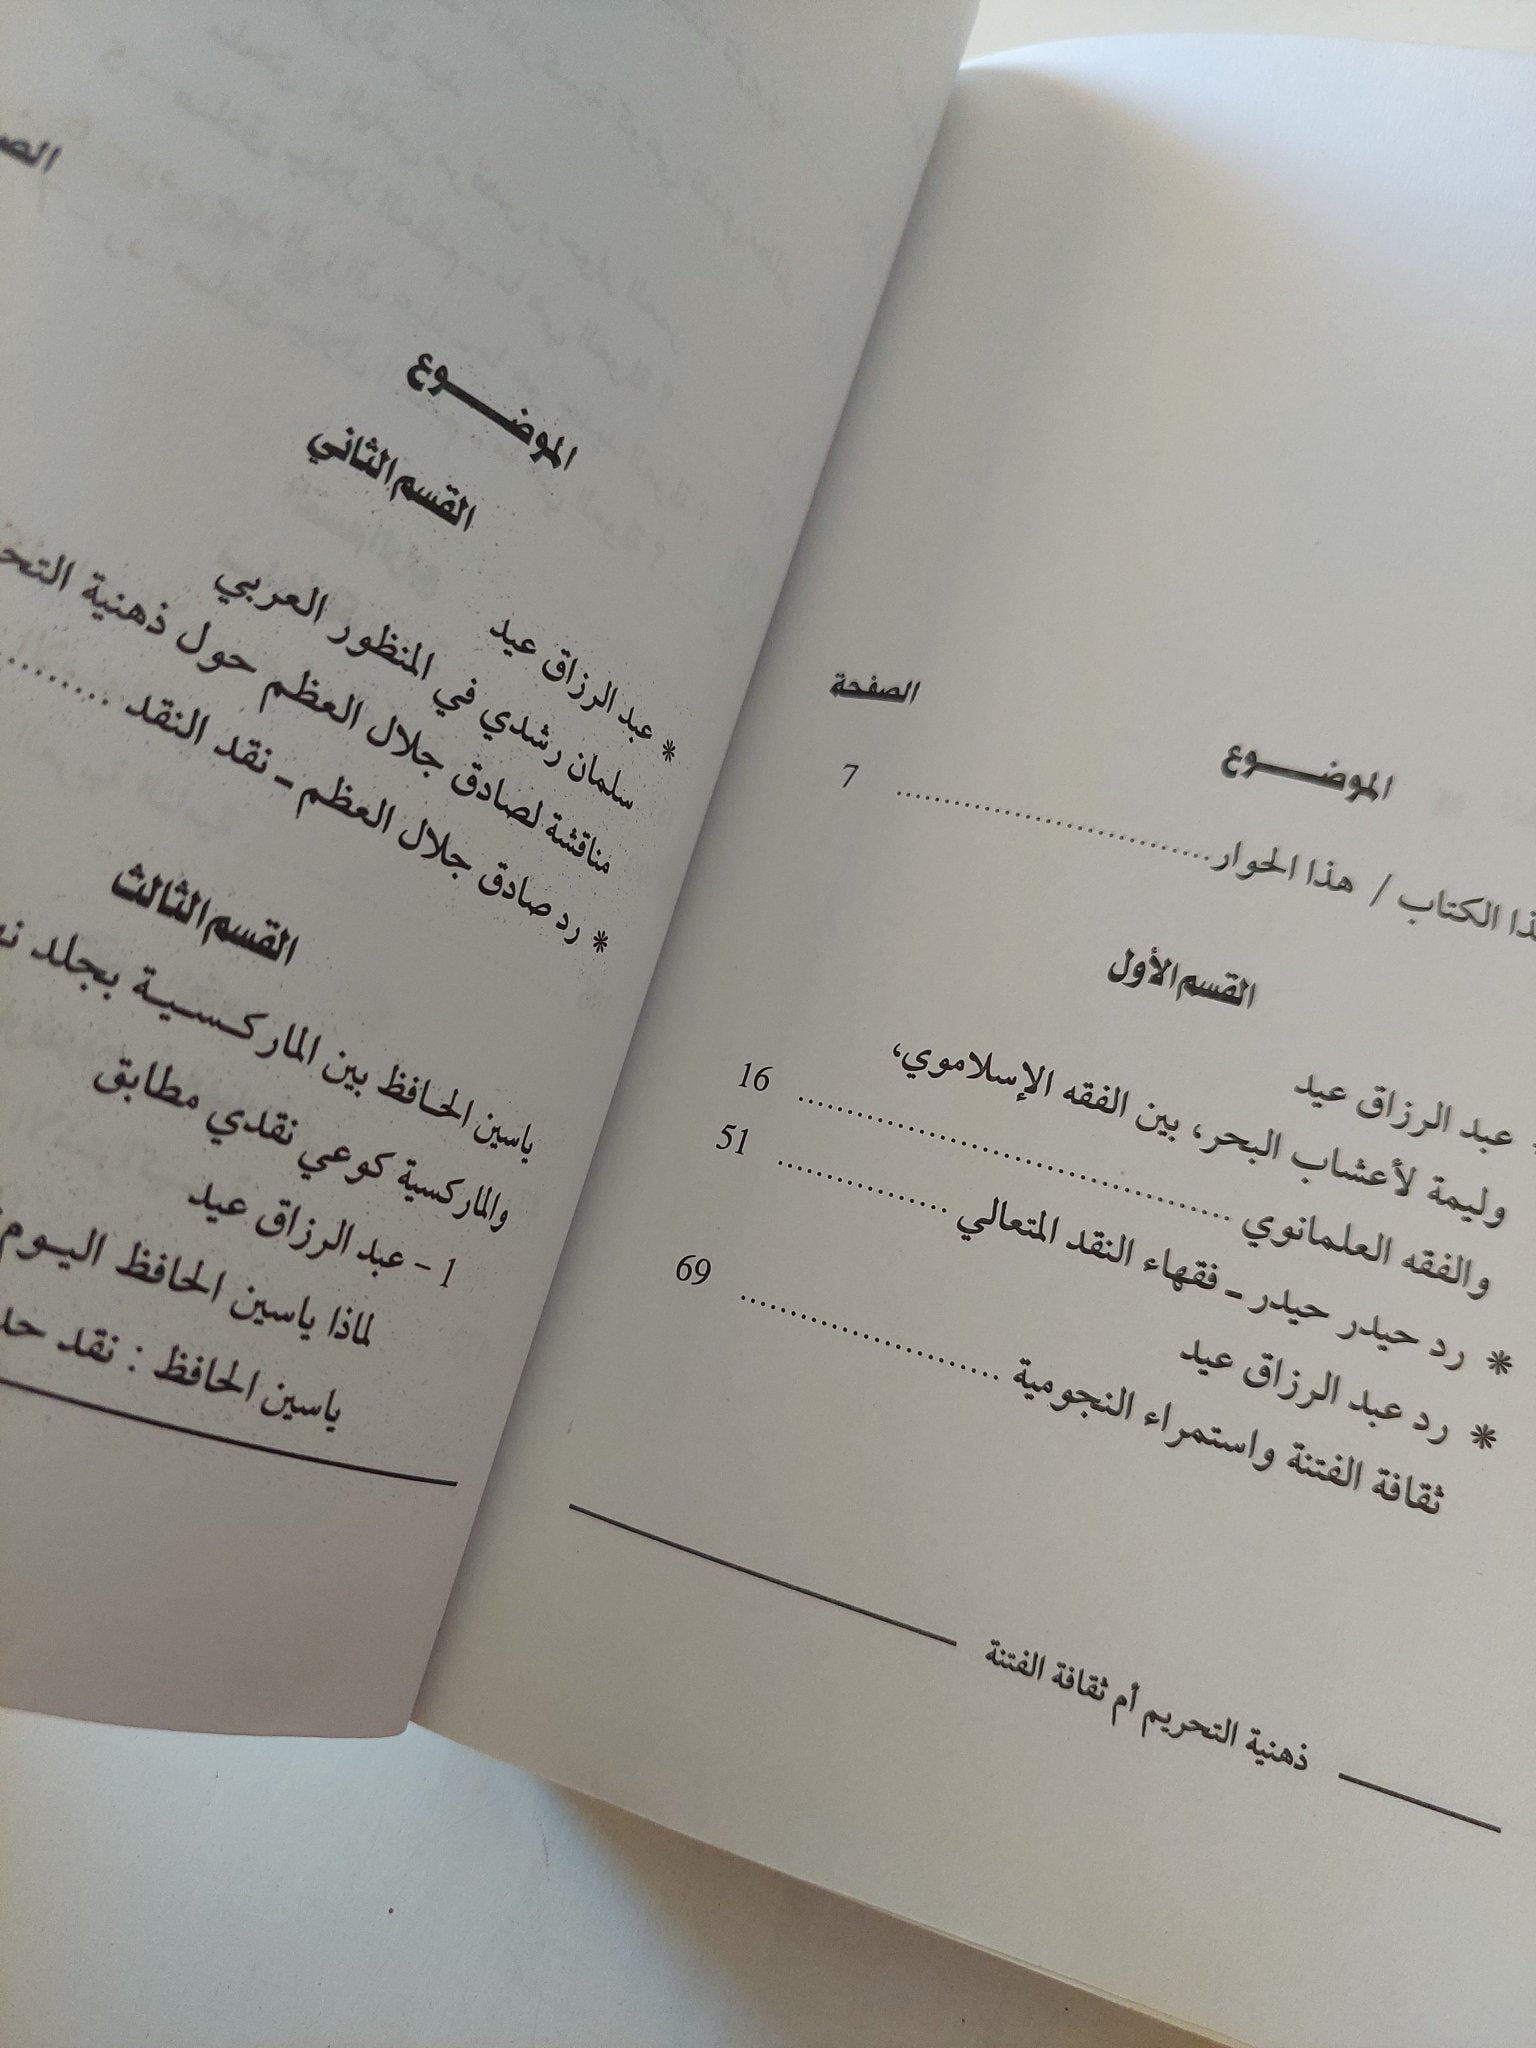 الموضــــوع الصفحة
هذا الكتاب / هذا الحوار ........................ 7
القسم الأول
* عبد الرزاق عيد
وليمة لأعشاب البحر، بين الفقه الإسلاموي،
والفقه العلمانوي ........................ 16
* رد حيدر حيدر ـ فقهاء النقد المتعالي ................ 51
* رد عبد الرزاق عيد
ثقافة الفتنة واستمراء النجومية ........................ 69
ذهنية التحريم أم ثقافة الفتنة
الموضــــوع
القسم الثاني
* عبد الرزاق عيد
سلمان رشدي في المنظور العربي
مناقشة لصادق جلال العظم حول ذهنية
* رد صادق جلال العظم ـ نقد النقد .........
القسم الثالث
ياسين الحافظ بين الماركسية بجلد
والماركسية كوعي نقدي مطابق
1 - عبد الرزاق عيد
لماذا ياسين الحافظ اليوم
ياسين الحافظ : نقد